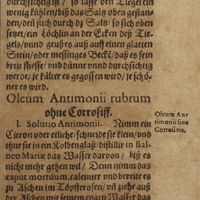 durchsichtig / so lasse den Tiegel ein
wenig kühlen / biß das Saltz oben gestan-
den / stich durch dz Saltz / so sich oben
setzet / ein Löchlin an der Ecken deß Tie-
gels / vnnd geuß es auß auff einen glatten
Stein / oder messings Beck / daß es fein
breit fliesse vnd dünne vnnd durchsichtig
werde / je kälter es gegossen wird / je schö-
ner es wird.
Oleum Antimonii rubrum
ohne Corrosiff.
Oleum An-
timonii sine
Corrosiuis.
1. Solutio Antimonii. Nimm ein
Citron oder etliche / schneide sie klein / vnd
thue sie in ein Kolbenglaß / distillir in Bal-
neo Mariæ das Wasser daruon / biß es
nicht mehr gehen wil / Denn nimm das
caput mortuum, calcinirs vnd bereite es
zu Aschen im Töpfferofen / vñ ziehe auß
der Aschen mit seinem eignen Wasser das